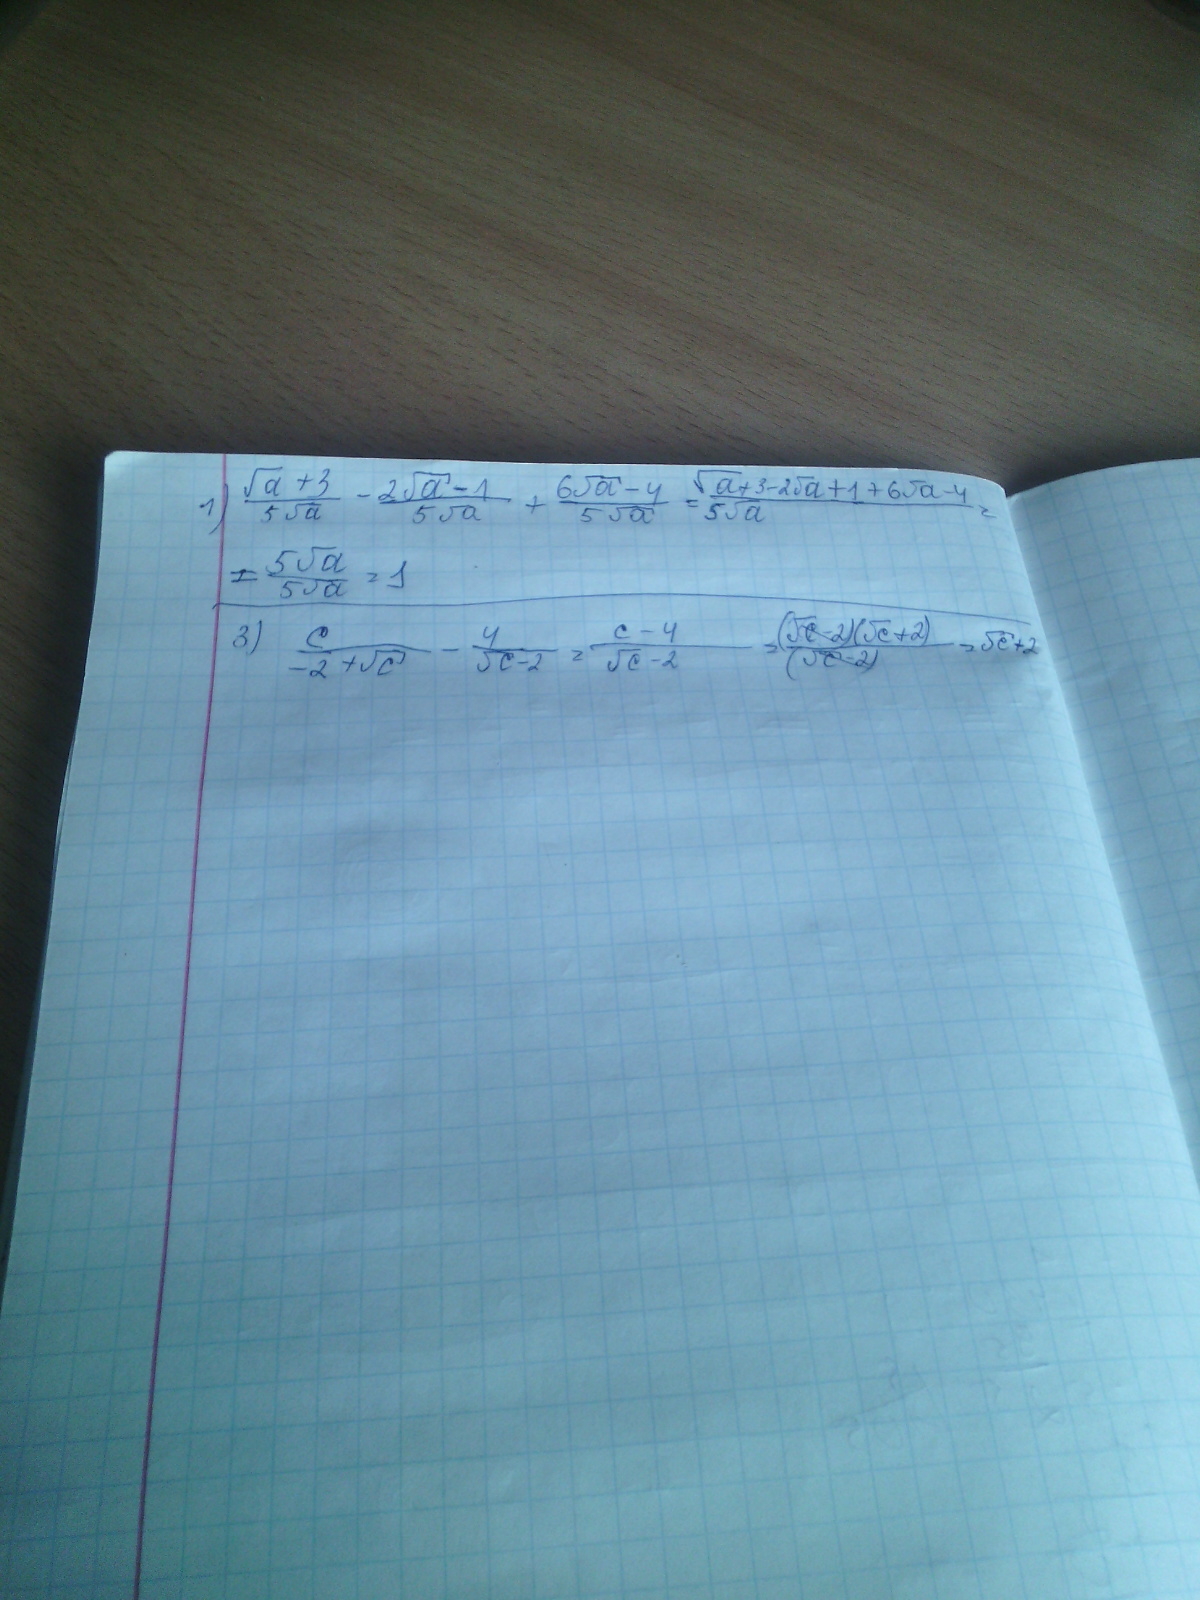 1) (√a + 3)/(5√a) - (2√a - 1)/(5√a) + (6√a - 4)/(5√a) = (√a + 3 - 2√a + 1 + 6√a - 4)/(5√a) =
= (5√a)/(5√a) = 1
3) c/(-2 + √c) - 4/(√c - 2) = (c - 4)/(√c - 2) = ((√c - 2)(√c + 2))/((√c - 2)) = √c + 2